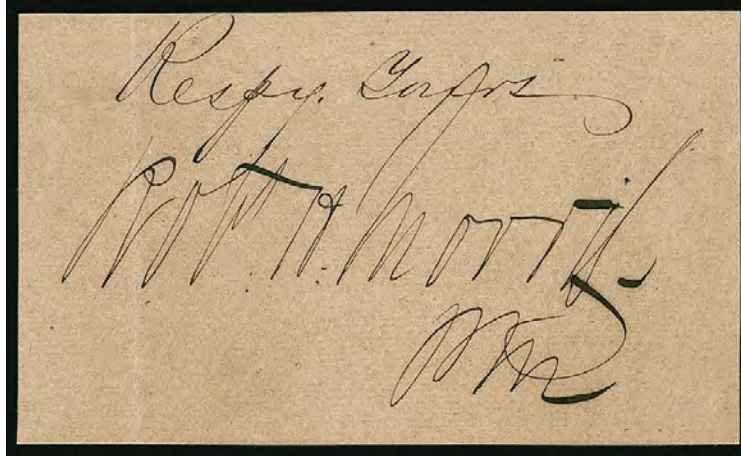 Respy. Yours
Robt. H. Morris
PM